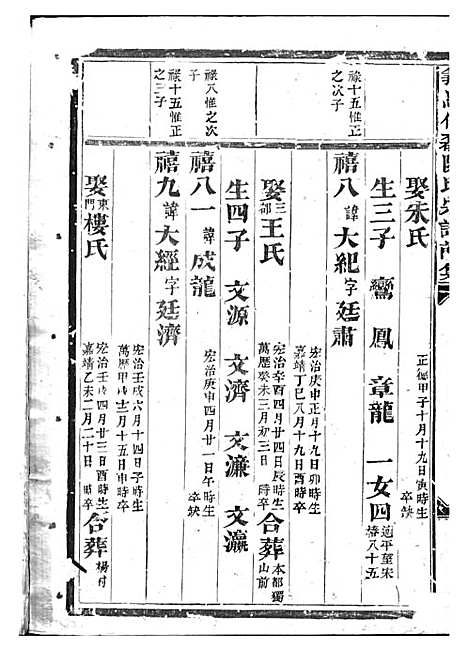 娶宋氏 正德甲子十月十九日寅時生 卒缺
生三子 鸞 鳳 章龍 一女四 適平至宋 禧八十五
祿十五惟正之二子
禧八 諱大紀 字廷肅 宏治庚申正月十九日卯時生 嘉靖丁巳八月十九日酉時卒
娶三都王氏 宏治辛酉四月四日辰時生 萬歷癸未三月初三日 時卒 合葬 本都獨山前
生四子 文源 文濟 文濂 文瀛
祿八惟之次子
禧八一 諱成龍 宏治庚申四月廿一日午時生 卒缺
祿十五惟正之三子
禧九 諱大經 字廷濟 宏治壬戌六月十四日子時生 萬歷甲戌十一月十五日申時卒
娶東門樓氏 宏治壬戌四月廿三日酉時生 嘉靖乙未二月二十日 時卒 合葬 楊村